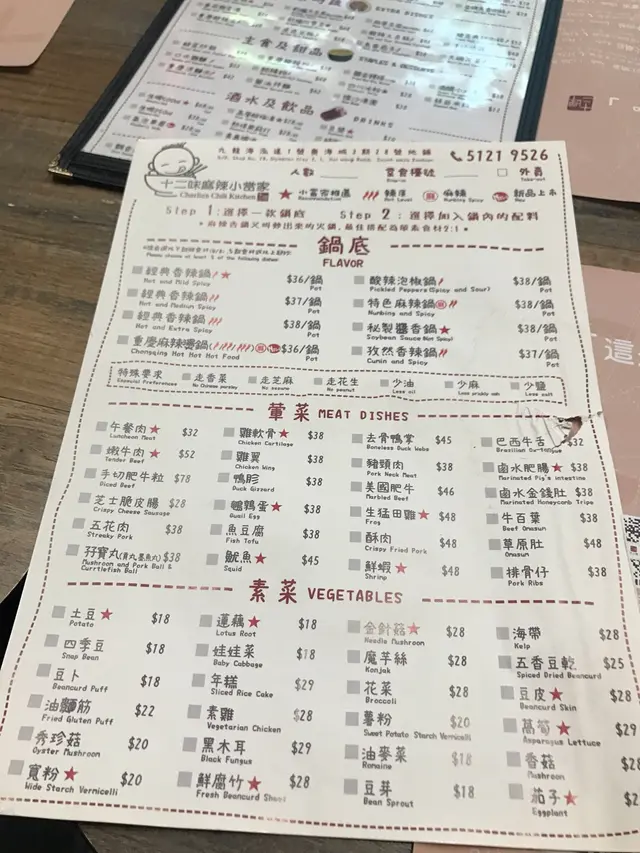 主食及甜品
STAPLES & DESSERTS
酒水及飲品
DRINKS
5121 9526
人數
堂食檯號
外賣
Take-out
十二味麻辣小當家
Charlie's Chili Kitchen
小當家推薦
Recommendation
辣度
Hot & Spicy
麻辣
Numbing Spicy
新品上市
New
Step 1:選擇一款鍋底 Step 2:選擇加入鍋內的配料
鍋底
FLAVOR
經典香辣鍋 $36/鍋
Hot and Mild Spicy Pot
經典香辣鍋 $37/鍋
Hot and Medium Spicy Pot
經典香辣鍋 $38/鍋
Hot and Extra Spicy Pot
重慶麻辣醬鍋 $36/鍋
Chongqing Hot Hot Hot Food Pot
酸辣泡椒鍋 $38/鍋
Pickled Peppers (Spicy and Sour) Pot
特色麻辣鍋 $38/鍋
Numbing and Spicy Pot
秘製醬香鍋 $38/鍋
Soybean Sauce (Not Spicy) Pot
孜然香辣鍋 $37/鍋
Cumin and Spicy Pot
特殊要求 走香菜 走芝麻 走花生 少油 少麻 少鹽
Especial Preferences No Chinese parsley No sesame No peanuts Less oil Less prickly ash Less salt
葷菜 MEAT DISHES
午餐肉 $32
Luncheon Meat
嫩牛肉 $52
Tender Beef
手切肥牛粒 $78
Diced Beef
芝士脆皮腸 $28
Crispy Cheese Sausage
五花肉 $38
Streaky Pork
孖寶丸(貢丸墨魚丸) $38
Mushroom and Pork Ball &
Curttlefish Ball
雞軟骨 $38
Chicken Cartilage
雞翼 $38
Chicken Wing
鴨胗 $38
Duck Gizzard
鵪鶉蛋 $38
Quail Egg
魚豆腐 $38
Fish Tofu
魷魚 $45
Squid
去骨鴨掌 $45
Boneless Duck Webs
豬頸肉 $38
Pork Neck Meat
美國肥牛 $46
Marbled Beef
生猛田雞 $48
Frog
酥肉 $48
Crispy Fried Pork
鮮蝦 $48
Shrimp
巴西牛舌 $32
Brazilian Ox-tongue
鹵水肥腸 $38
Marinated Pig's intestine
鹵水金錢肚 $38
Marinated Honeycomb Tripe
牛百葉 $38
Beef Omasum
草原肚 $48
Omasum
排骨仔 $38
Pork Ribs
素菜 VEGETABLES
土豆 $18
Potato
四季豆 $18
Snap Bean
豆卜 $18
Beancurd Puff
油麵筋 $22
Fried Gluten Puff
秀珍菇 $20
Oyster Mushroom
寬粉 $20
Wide Starch Vermicelli
蓮藕 $18
Lotus Root
娃娃菜 $18
Baby Cabbage
年糕 $29
Sliced Rice Cake
素雞 $28
Vegetarian Chicken
黑木耳 $29
Black Fungus
鮮腐竹 $28
Fresh Beancurd Sheet
金針菇 $28
Needle Mushroom
魔芋絲 $28
Konjak
花菜 $28
Broccoli
薯粉 $20
Sweet Potato Starch Vermicelli
油麥菜 $18
Romaine
豆芽 $18
Bean Sprout
海帶 $28
Kelp
五香豆乾 $25
Spiced Dried Beancurd
豆皮 $28
Beancurd Skin
萵筍 $29
Asparagus Lettuce
香菇
Mushroom
茄子
Eggplant
這